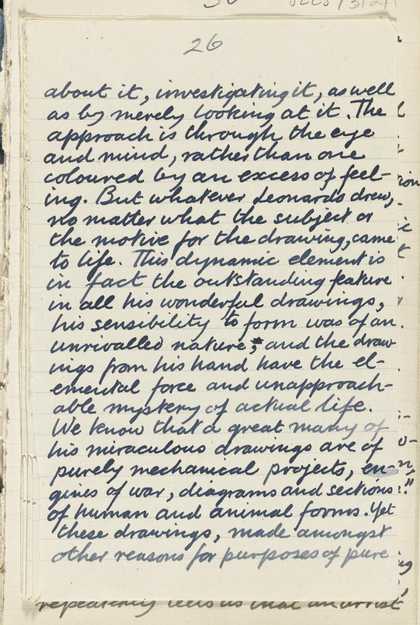 26
about it, investigating it, as well
as by merely looking at it. The
approach is through the eye
and mind, rather than one
coloured by an excess of feel-
ing. But whatever Leonardo drew,
no matter what the subject or
the motive for the drawing, came
to life. This dynamic element is
in fact the outstanding feature
in all his wonderful drawings,
his sensibility to form was of an
unrivalled nature; and the draw-
ings from his hand have the el-
emental force and unapproach-
able mystery of actual life.
We know that a great many of
his miraculous drawings are of
purely mechanical projects, en-
gines of war, diagrams and sections
of human and animal forms. Yet
these drawings, made amongst
other reasons for purposes of pure
repeatedly tells us that an artist